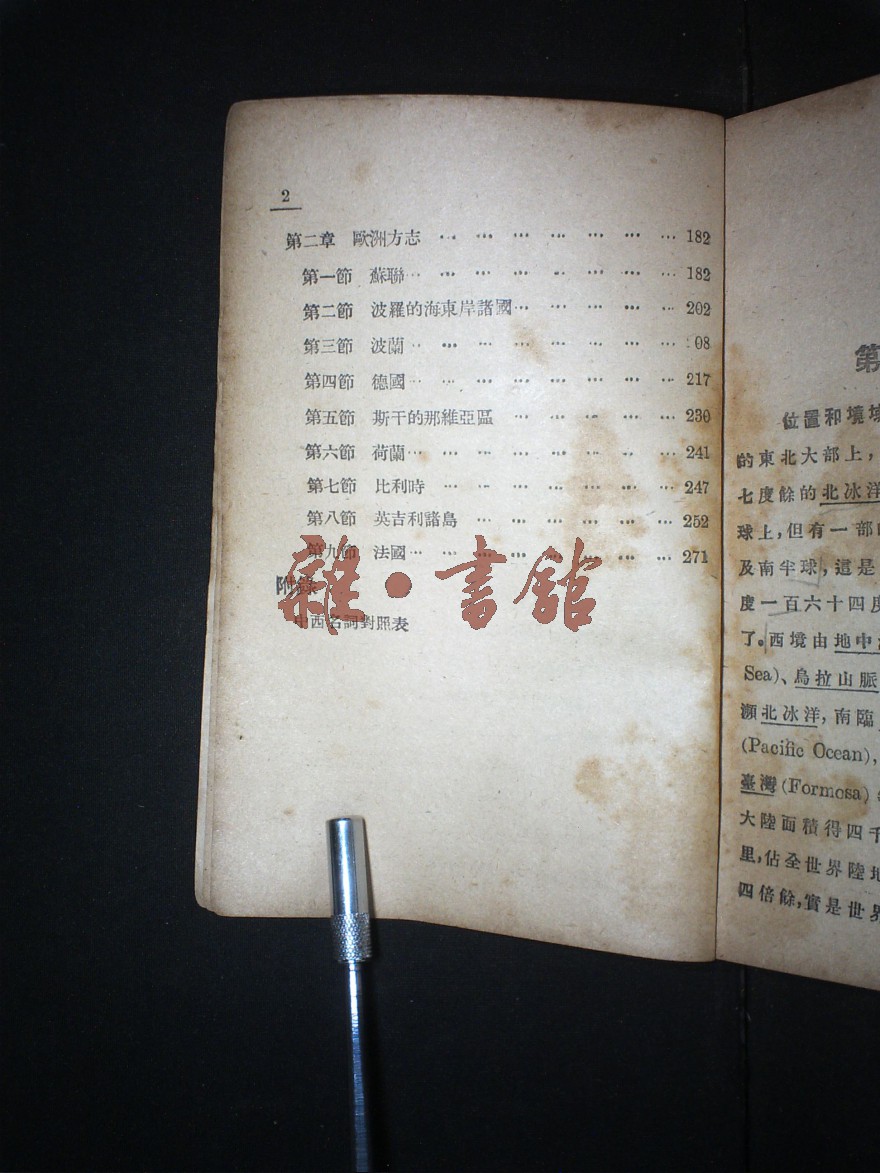 2
第二章 歐洲方志 … … … … … … … 182
第一節 蘇聯… … … … … … … … 182
第二節 波羅的海東岸諸國… … … … … 202
第三節 波蘭… … … … … … … … 08
第四節 德國… … … … … … … … 217
第五節 斯干的那維亞區 … … … … … 230
第六節 荷蘭… … … … … … … … 241
第七節 比利時 … … … … … … … 247
第八節 英吉利諸島 … … … … … … 252
第九節 法國… … … … … … … … 271
附錄
中西名詞對照表
雜·書館
第
位置和境域
的東北大部上，
七度餘的北冰洋
球上，但有一部
及南半球，這是
度一百六十四度
了。西境由地中
Sea)、烏拉山脈
瀕北冰洋，南臨
(Pacific Ocean)，
臺灣(Formosa)
大陸面積得四千
里，佔全世界陸地
四倍餘，實是世界